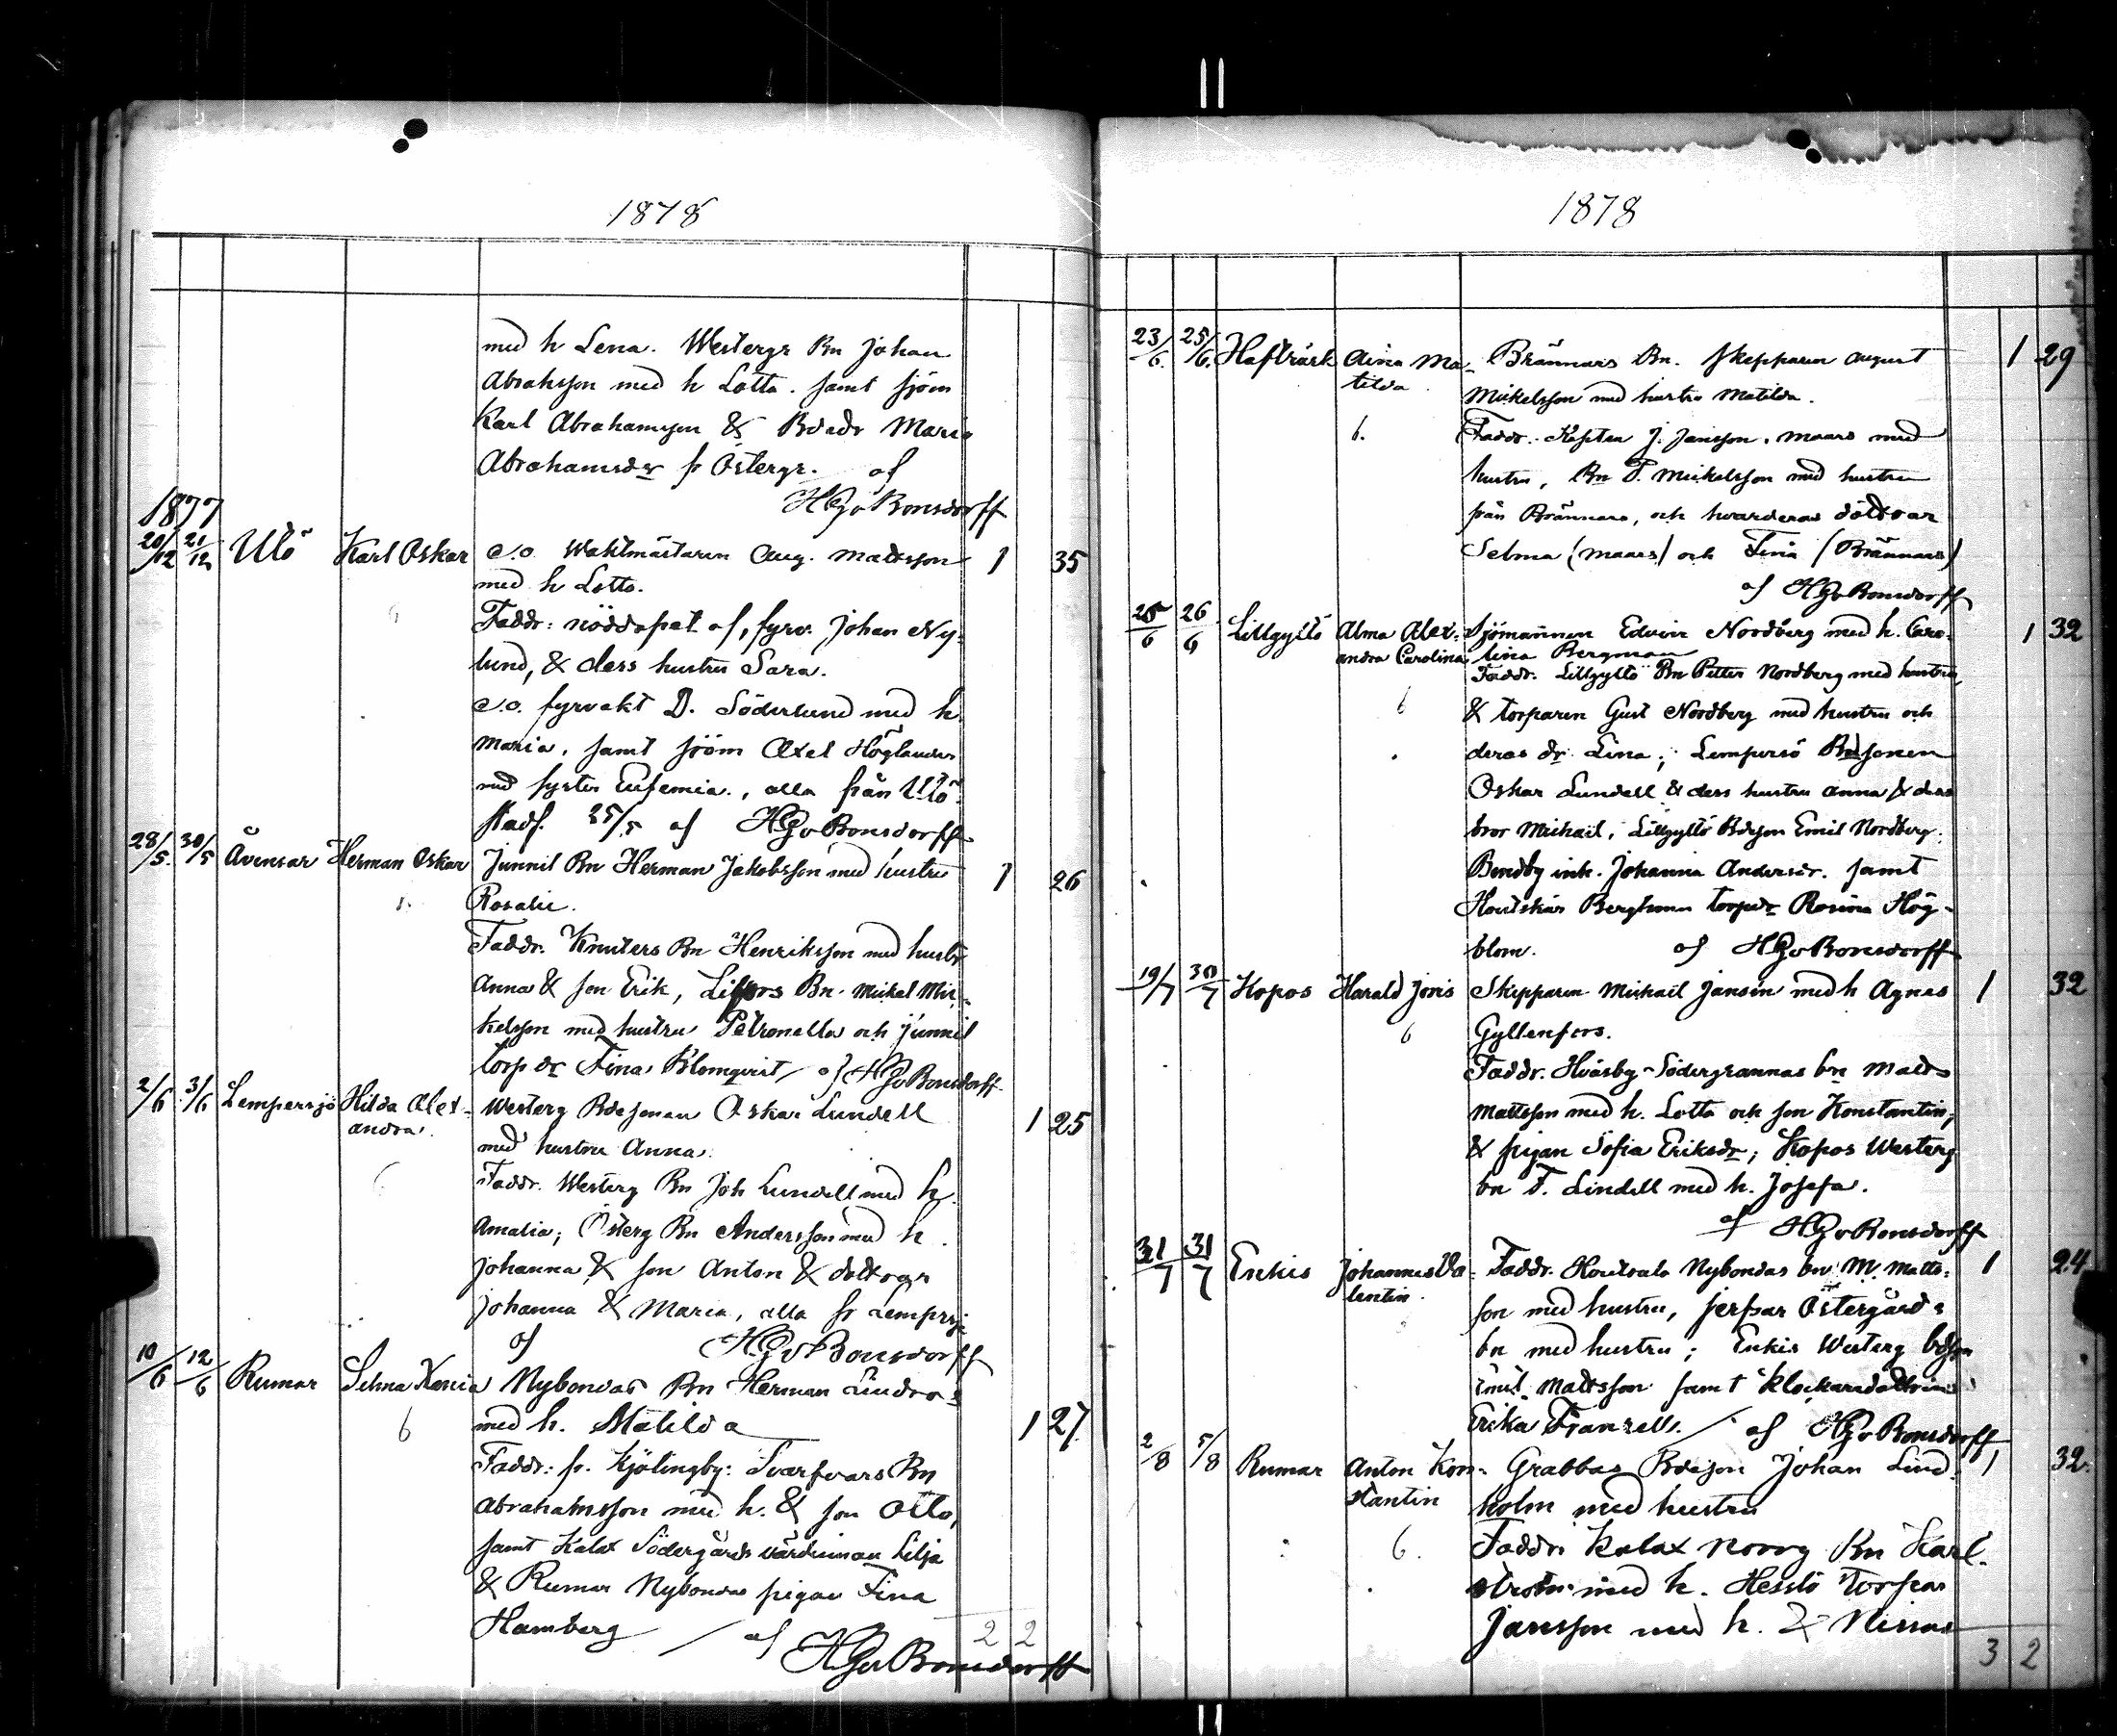 1878
med h Lena. Westergr Bn Johan
Abrahsson med h Lotta. samt sjöm
Karl Abrahamsson & Bdedr Maria
Abrahamsdr fr Östergr. af
HGvBonsdorff
1877
20/12 21/12 Utö Karl Oskar e.o. Waktmästaren Aug. Mattsson 1 35
med h Lotta.
Faddr: nöddöpt af, fyrv. Johan Ny-
lund, & dess hustru Sara.
e.o. fyrvakt D. Söderlund med h.
Maria, samt sjöm Axel Höglander
med syster Eufemia., alla från Utö.
stadf. 25/5 af HGvBonsdorff
28/5. 30/5 Åvensar Herman Oskar Junnil Bn Herman Jakobsson med hustru 1 26
Rosalie.
Faddr. Knuters Bn Henriksson med hustr
Anna & son Erik, Bn. Mickel Mic-
kelsson med hustru Petronella och Junnil
torp dr Fina Blomqvist / af HGvBonsdorff
2/6 3/6 Lempersjö Hilda Alex- Westerg Bdesonen Oskar Lundell 1 25
andra. med hustru Anna.
Faddr. Westerg Bn Joh Lundell med h.
Amalia; Österg Bn Andersson med h.
Johanna & son Anton & döttrar
Johanna & Maria, alla fr Lempersjö
af HGvBonsdorff
10/6 12/6 Rumar Selma Xenia Nybondas Bn Herman Lindroos 1 27
6 med h. Matilda
Faddr: fr. Kjölingby: Svarfvars Bn
Abrahamsson med h. & son Otto,
samt Kalax Södergårds värdinnan Lilja
& Rumar Nybondas pigan Fina
Hamberg / af
2 2
HGvBonsdorff
1878
23/6. 25/6. Hafträsk Aina Ma- Brännars Bn. Skepparen August 1 29
tilda Mickelsson med hustru Matilda.
6. Faddr. J. Jansson. Maars med
hustru, Bn F. Mickelsson med hustru
från Brännars, och hvarderas döttrar
Selma (Maars) och Fina (Brännars)
af HGvBonsdorff
25/6 26/6 Lillgyltö Alma Alex- Sjömannen Edvin Nordberg med h. Caro- 1 32
andra Carolina lina Bergman
Faddr. Lillgyltö Bn Petter Nordberg med hustru,
6 & torparen Gust Nordberg med hustru och
deras dr Lina; Lempersö Bdsonen
Oskar Lundell & dess hustru Anna & dess
bror Michail, Lillgyltö Bdeson Emil Nordberg.
Bendby inh. Johanna Andersdr. samt
Houtskär Berghamn torpdr Rosina Hög-
blom. af HGvBonsdorff
19/7 30/7 Kopos Harald Joris Skepparen Michail Jansén med h Agnes 1 32
6 Gyllenfors.
Faddr. Hväsby Södergrannas bn Matts
Mattsson med h. Lotta och son Konstantin,
& pigan Sofia Eriksdr; Kopos Westerg
bn F. Lindell med h. Josefa.
af HGvBonsdorff
31/7 31/7 Enkis Johannes Va- Faddr. Nybondas bn M. Matts- 1 24
lentin. son med hustru, Jerfsar Östergårds
bn med hustru; Enkis Westerg bdson
Emil Mattsson samt Klockaredottren
Erika Franzell. / af HGvBonsdorff
2/8 5/8 Rumar Anton Kon- Grabbas Bdeson Johan Lind- 1 32
stantin holm med hustru
6. Faddr: Kalax Norrg Bn Karl-
ström med h. Hesslö Torpar
Jansson med h. &
3 2